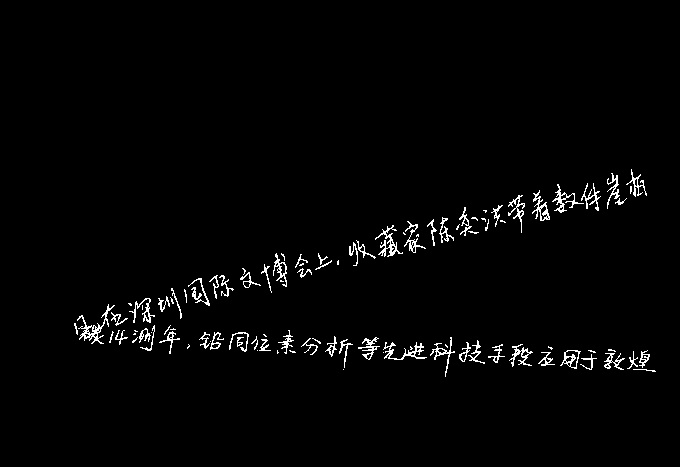 在深圳国际文博会上，收藏家陈奕洪带着数件崖柏
碳14测年，铅同位素分析等先进科技手段应用于敦煌